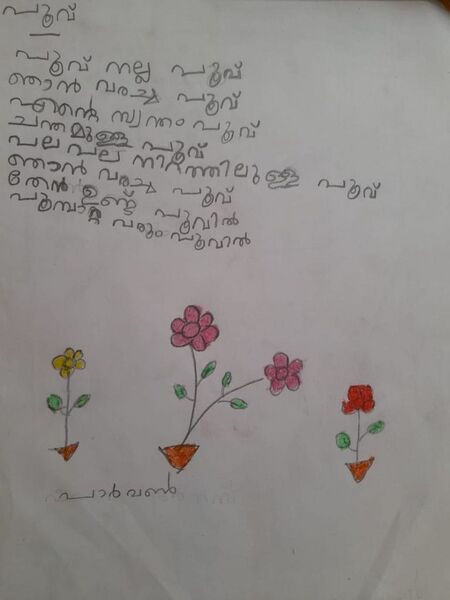 പൂവ്
പൂവ് നല്ല പൂവ്
ഞാൻ വരച്ച പൂവ്
എന്റെ സ്വന്തം പൂവ്
ചന്തമുള്ള പൂവ്
പല പല നിറത്തിലുള്ള പൂവ്
ഞാൻ വരച്ച പൂവ്
തേൻ ഉണ്ട് പൂവിൽ
പൂമ്പാറ്റ വരും പൂവിൽ
പാർവൺ